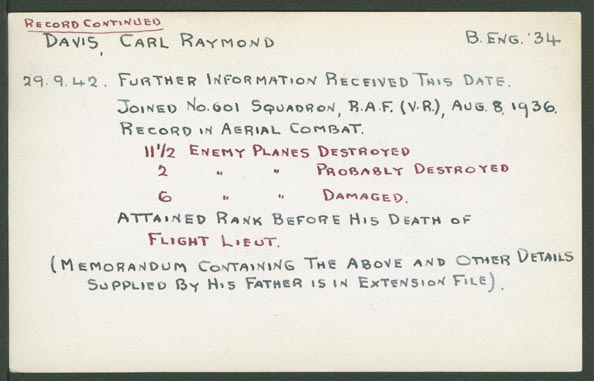 RECORD CONTINUED
DAVIS, CARL RAYMOND B. ENG. '34
29.9.42. FURTHER INFORMATION RECEIVED THIS DATE.
JOINED NO. 601 SQUADRON, R.A.F. (V.R.), AUG. 8, 1936.
RECORD IN AERIAL COMBAT.
11 1/2 ENEMY PLANES DESTROYED
2 " " PROBABLY DESTROYED
6 " " DAMAGED.
ATTAINED RANK BEFORE HIS DEATH OF
FLIGHT LIEUT.
(MEMORANDUM CONTAINING THE ABOVE AND OTHER DETAILS
SUPPLIED BY HIS FATHER IS IN EXTENSION FILE).